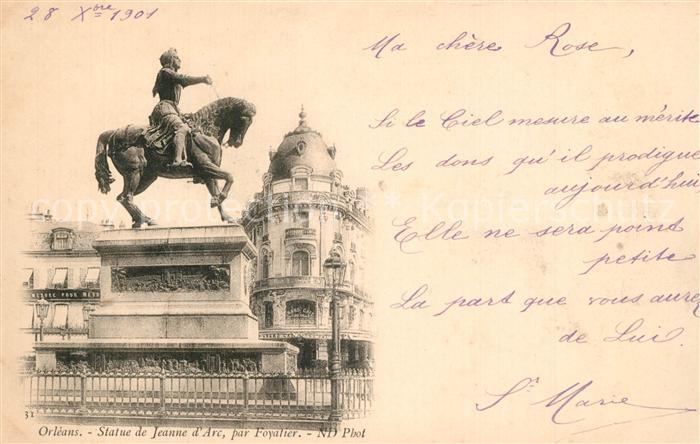 28 Xbre 1901
Ma chère Rose,
Si le Ciel mesure au mérite
Les dons qu'il prodigue
aujourd'hui
Elle ne sera point
petite
La part que vous aurez
de Lui.
Sr Marie
31
Orléans. - Statue de Jeanne d'Arc, par Foyatier. - ND Phot
Copyright Kopierschutz